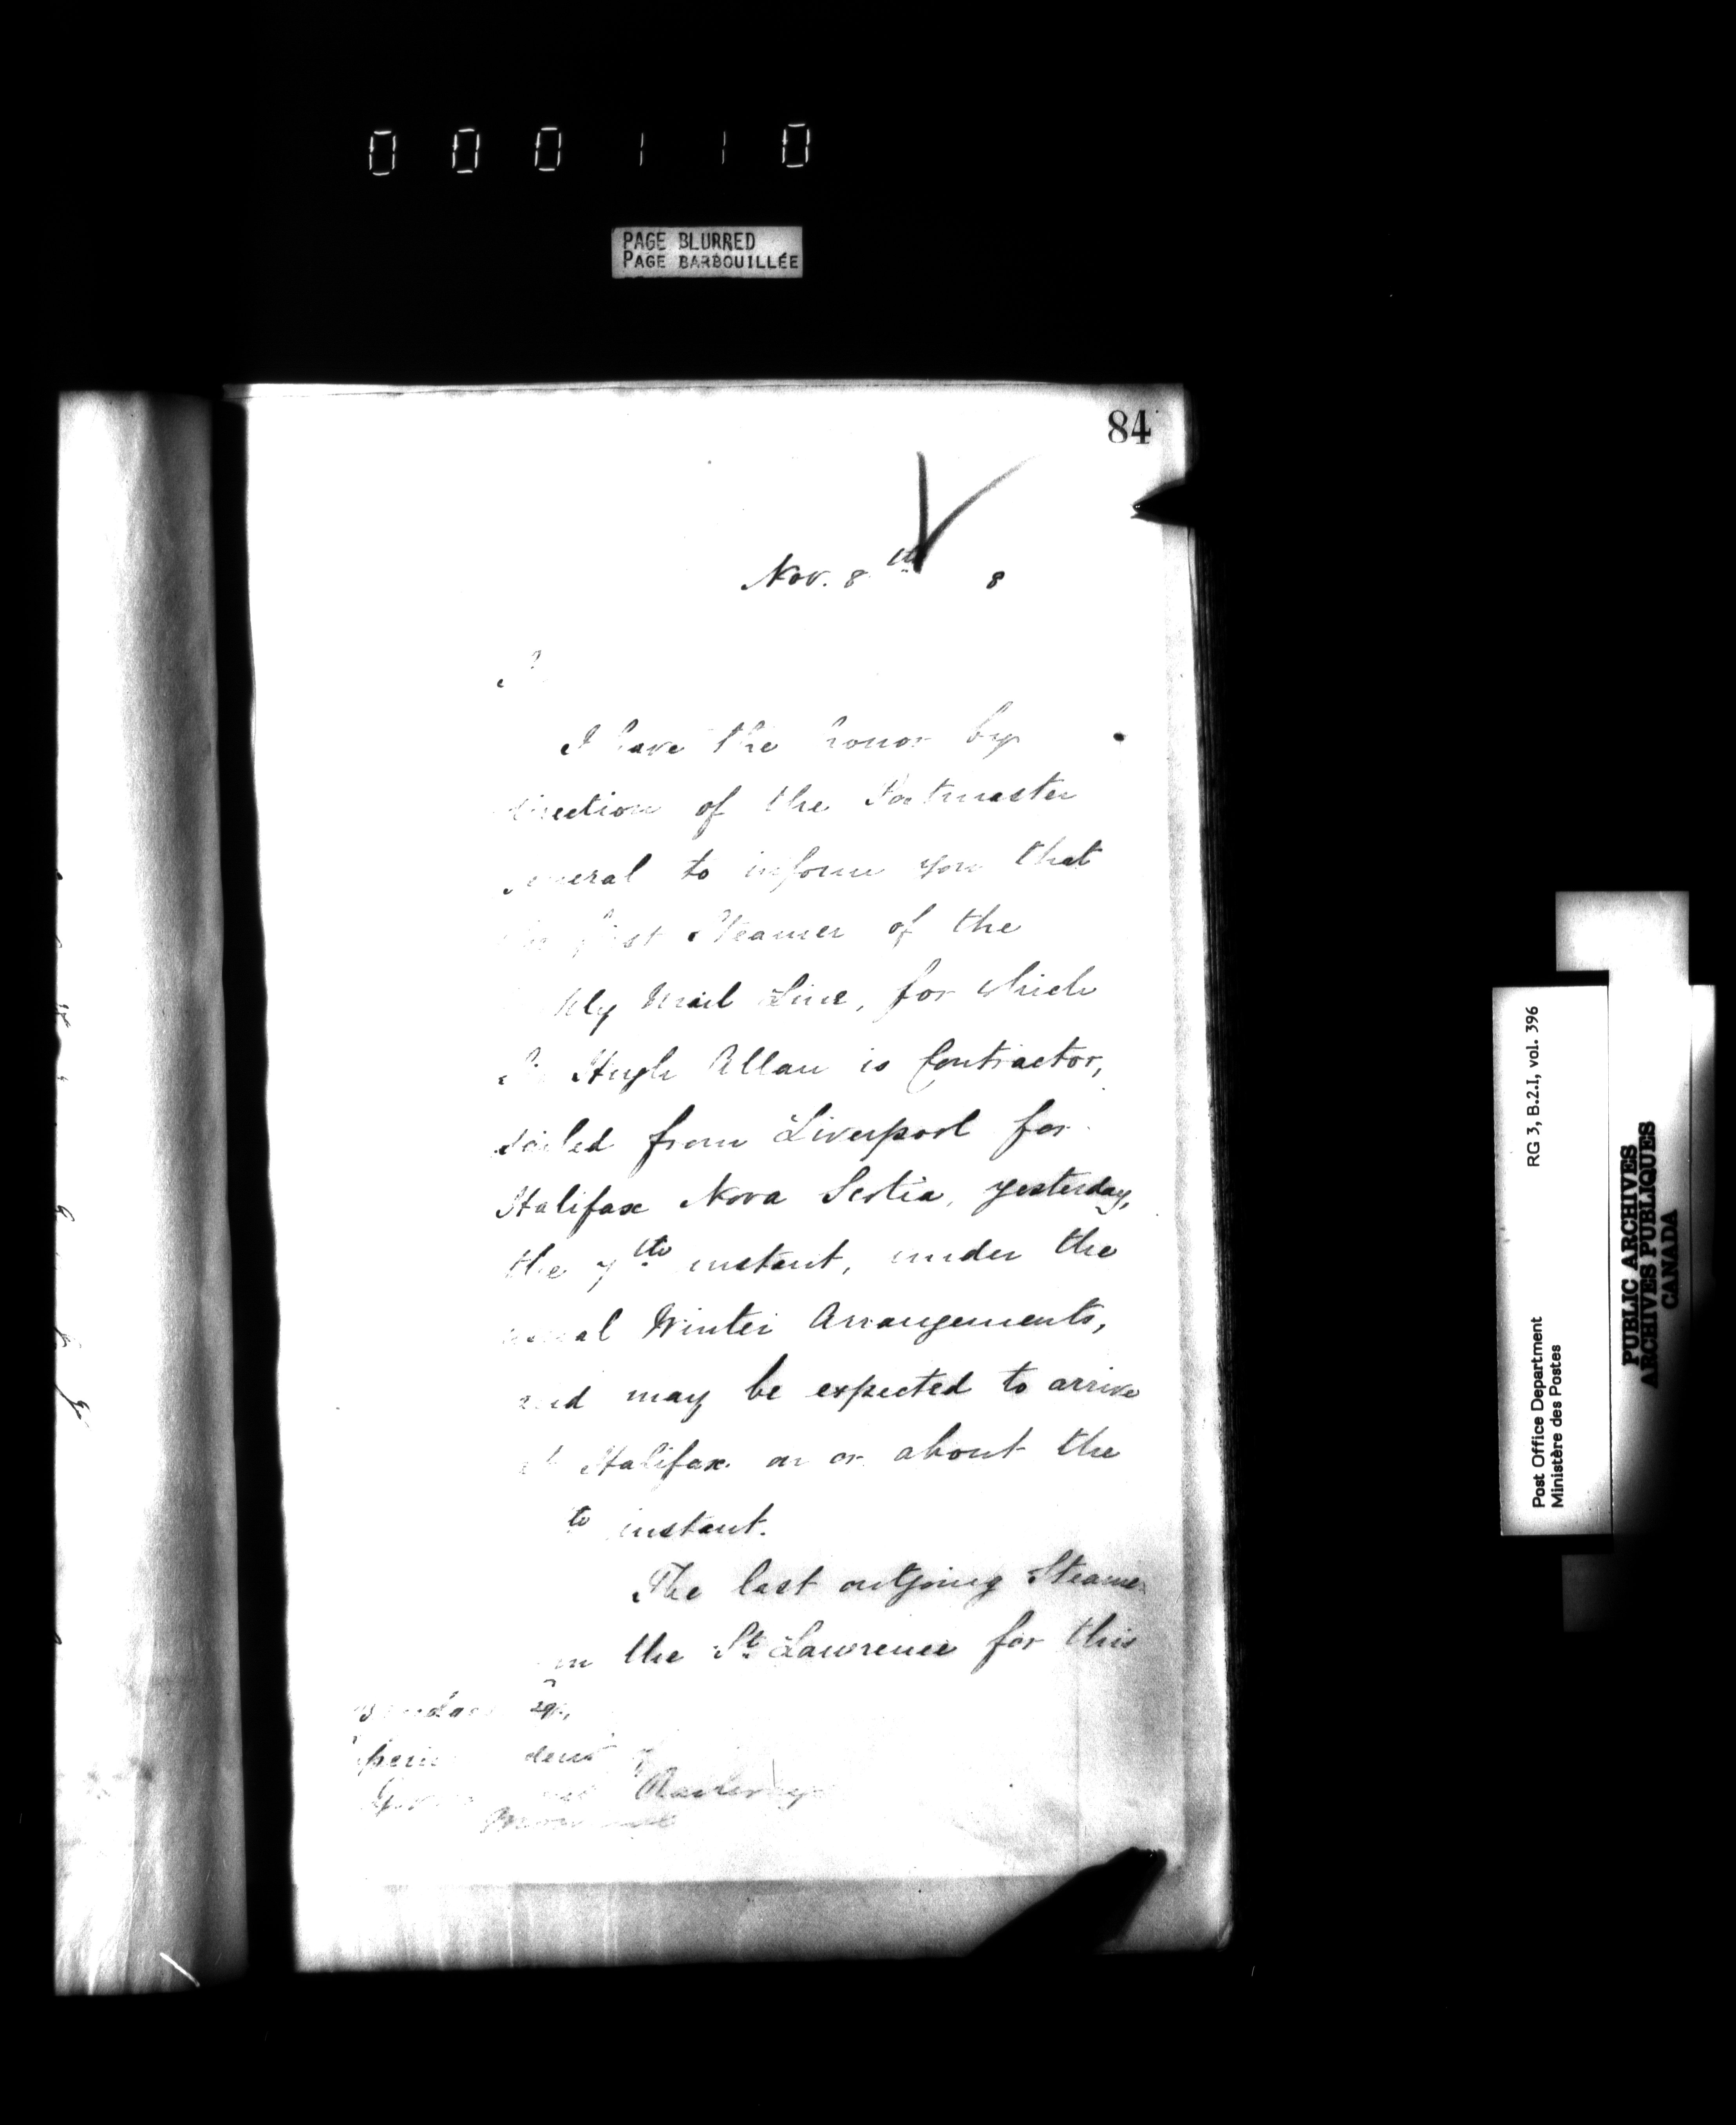 000110
PAGE BLURRED
PAGE BARBOUILLÉE
84
Nov. 8th 8
I have the honor by
direction of the Postmaster
General to inform you that
the first Steamer of the
kly Mail Line, for which
Sir Hugh Allan is Contractor,
sailed from Liverpool for
Halifax Nova Scotia, yesterday,
the 7th instant, under the
usual Winter Arrangements,
and may be expected to arrive
at Halifax on or about the
instant.
The last outgoing Steamer
the St Lawrence for this
Railways
RG 3, B.2.I, vol. 396
Post Office Department
Ministère des Postes
PUBLIC ARCHIVES
ARCHIVES PUBLIQUES
CANADA